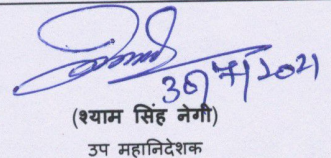 30/7/2021
(श्याम सिंह नेगी)
उप महानिदेशक